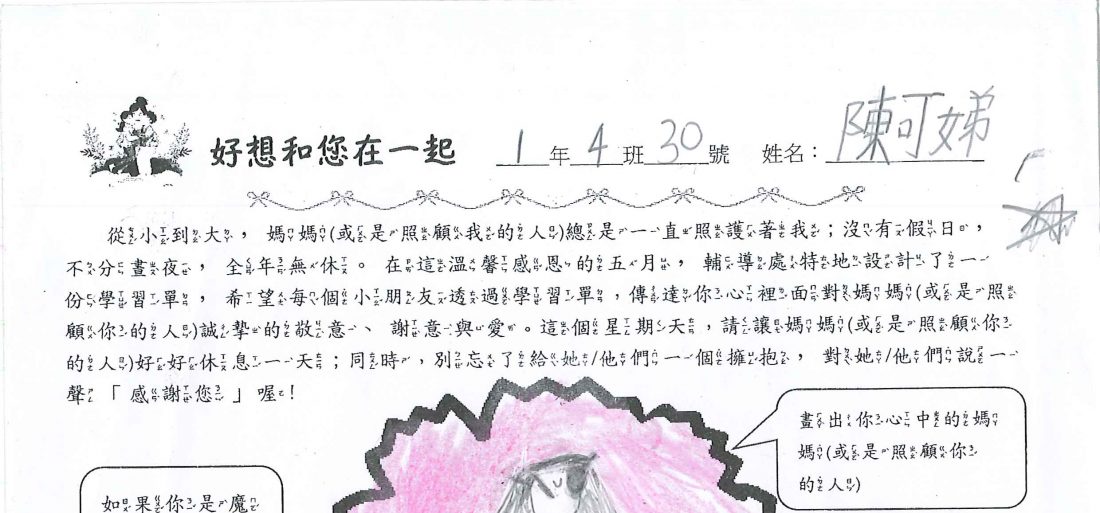 好想和您在一起 1年4班30號 姓名：陳可娣
從小到大， 媽媽(或是照顧我的人)總是一直照護著我；沒有假日，
不分晝夜， 全年無休。 在這溫馨感恩的五月， 輔導處特地設計了一
份學習單， 希望每個小朋友透過學習單，傳達你心裡面對媽媽(或是照
顧你的人)誠摯的敬意、 謝意與愛。這個星期天，請讓媽媽(或是照顧你
的人)好好休息一天；同時，別忘了給她/他們一個擁抱， 對她/他們說一
聲「 感謝您」喔!
畫出你心中的媽
媽(或是照顧你
的人)
如果你是魔